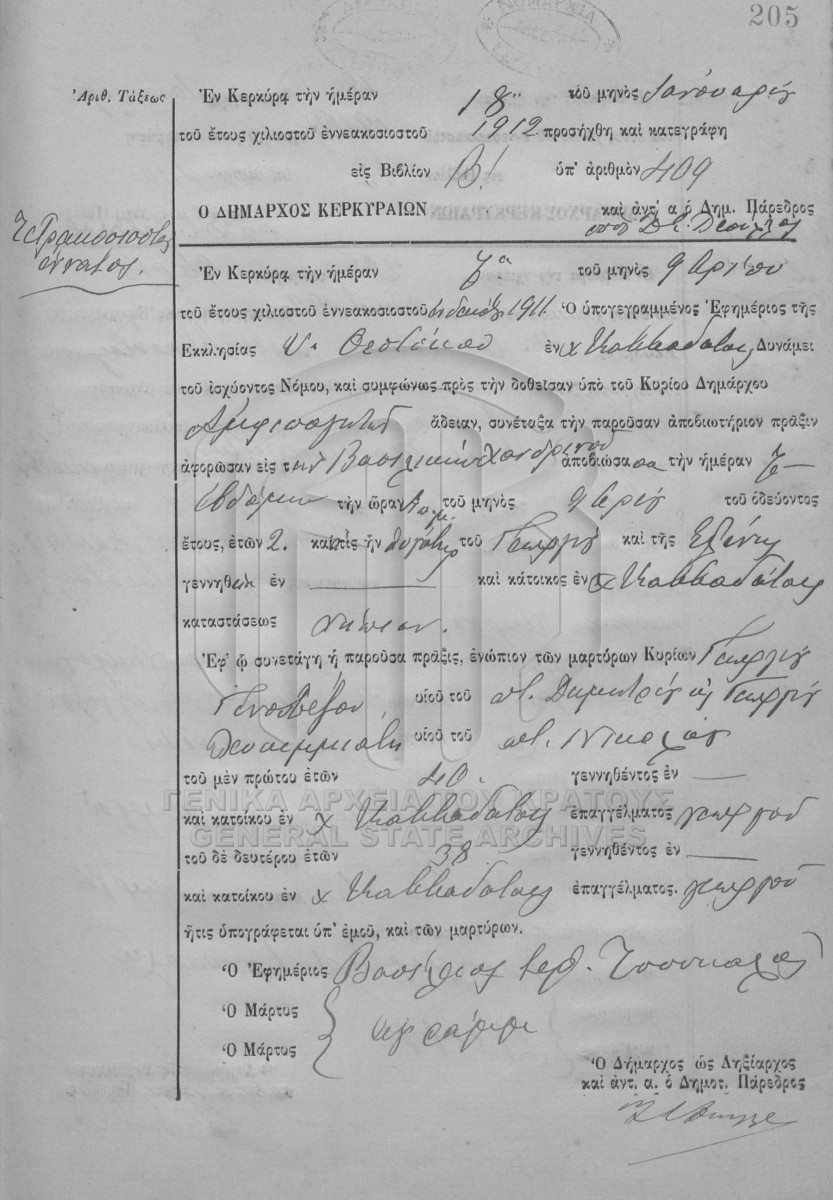 205
ΝΟΜΑΡΧΙΑ
Ἀριθ. Τάξεως
Ἐν Κερκύρᾳ τὴν ἡμέραν 18 τοῦ μηνὸς Ἰανουαρίου
τοῦ ἔτους χιλιοστοῦ ἐννεακοσιοστοῦ 1912 προσήχθη καὶ κατεγράφη
εἰς Βιβλίον Β! ὑπ' ἀριθμὸν 409
Ὁ ΔΗΜΑΡΧΟΣ ΚΕΡΚΥΡΑΙΩΝ καὶ ἀντ' α ὁ Δημ. Πάρεδρος
Τετρακοσιοστὸς
ἔννατος.
Ἐν Κερκύρᾳ τὴν ἡμέραν ζ τοῦ μηνὸς 9βρίου
τοῦ ἔτους χιλιοστοῦ ἐννεακοσιοστοῦ ἑνδεκάτου 1911 Ὁ ὑπογεγραμμένος Ἐφημέριος τῆς
Εκκλησίας Υ. Θεοτόκου ἐν χ Καββαδάταις Δυνάμει
τοῦ ἰσχύοντος Νόμου, καὶ συμφώνως πρὸς τὴν δοθεῖσαν ὑπὸ τοῦ Κυρίου Δημάρχου
Ἀμφιπαγιτῶν ἄδειαν, συνέταξα τὴν παροῦσαν ἀποβιωτήριον πρᾶξιν
ἀφορῶσαν εἰς τὴν Βασιλικὴν Χονδρινοῦ ἀποβιώσασα τὴν ἡμέραν ζ —
ἑβδόμην τὴν ὥραν τοῦ μηνὸς 9βρίου τοῦ ὁδεύοντος
ἔτους, ἐτῶν 2. καὶ τὶς ἦν θυγάτηρ τοῦ Γεωργίου καὶ τῆς Ἑλένης
γεννηθεῖσα ἐν — καὶ κάτοικος ἐν χ Καββαδάταις
καταστάσεως νήπιον.
Ἐφ' ᾧ συνετάγη ἡ παροῦσα πρᾶξις, ἐνώπιον τῶν μαρτύρων Κυρίων Γεωργίου
υἱοῦ τοῦ ποτ. Δημητρίου καὶ Γεωργίου
υἱοῦ τοῦ ποτ. Νικολάου
τοῦ μὲν πρώτου ἐτῶν 40. γεννηθέντος ἐν —
ΓΕΝΙΚΑ ΑΡΧΕΙΑ ΤΟΥ ΚΡΑΤΟΥΣ
καὶ κατοίκου ἐν χ Καββαδάταις ἐπαγγέλματος γεωργοῦ
GENERAL STATE ARCHIVES
τοῦ δὲ δευτέρου ἐτῶν 38 γεννηθέντος ἐν —
καὶ κατοίκου ἐν χ Καββαδάταις ἐπαγγέλματος. γεωργοῦ
ἥτις ὑπογράφεται ὑπ' ἐμοῦ, καὶ τῶν μαρτύρων.
Ὁ Ἐφημέριος Βασίλειος ἱερ. Τσουκαλᾶς
Ὁ Μάρτυς
ἀγράμματοι
Ὁ Μάρτυς
Ὁ Δήμαρχος ὡς Ληξίαρχος
καὶ ἀντ. α. ὁ Δημοτ. Πάρεδρος